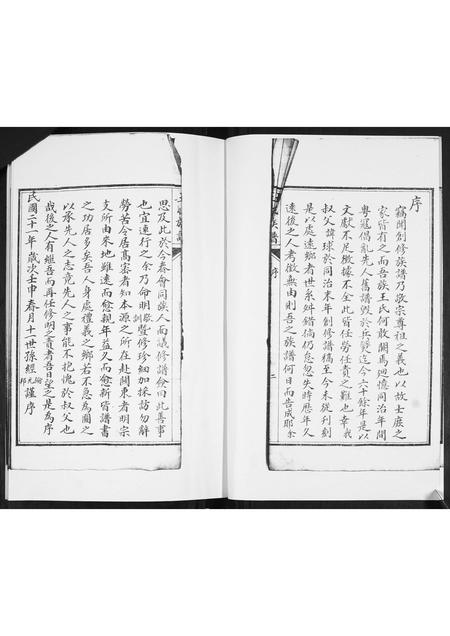 序
竊聞創修族譜乃敬宗尊祖之義也以故士庶之
家皆有之而吾族王氏何敢闕焉廻憶同治年間
粤寇倡亂先人舊譜毀於兵燹迄今六十餘年是以
文獻不足徵據不全此皆任勞任責之難也幸我
叔父諱球於同治末年創修譜稿至今未從刋刻
是以處遠鄉者世系舛錯倘仍怠忽失時歷年久
遠後之人考徵無由則吾之族譜何日而告成耶余
族譜
序
思及此於今春會同族人而議修譜僉曰此善事
也宜速行之余乃命明敬訓暨修珍細加採訪勿辭
勞苦今居高密者知本源之所在赴關東者明宗
支所由來地雖遠而愈親年益久而愈新皆譜書
之功居多矣吾人身處禮義之鄉若不急為圖之
以承先人之志竟先人之事能不抱愧於叔父也
哉後之人有繼吾而再任修明之責者吾日望之是為序
民國二十一年歲次壬申春月十一世孫經綸元邦謹序